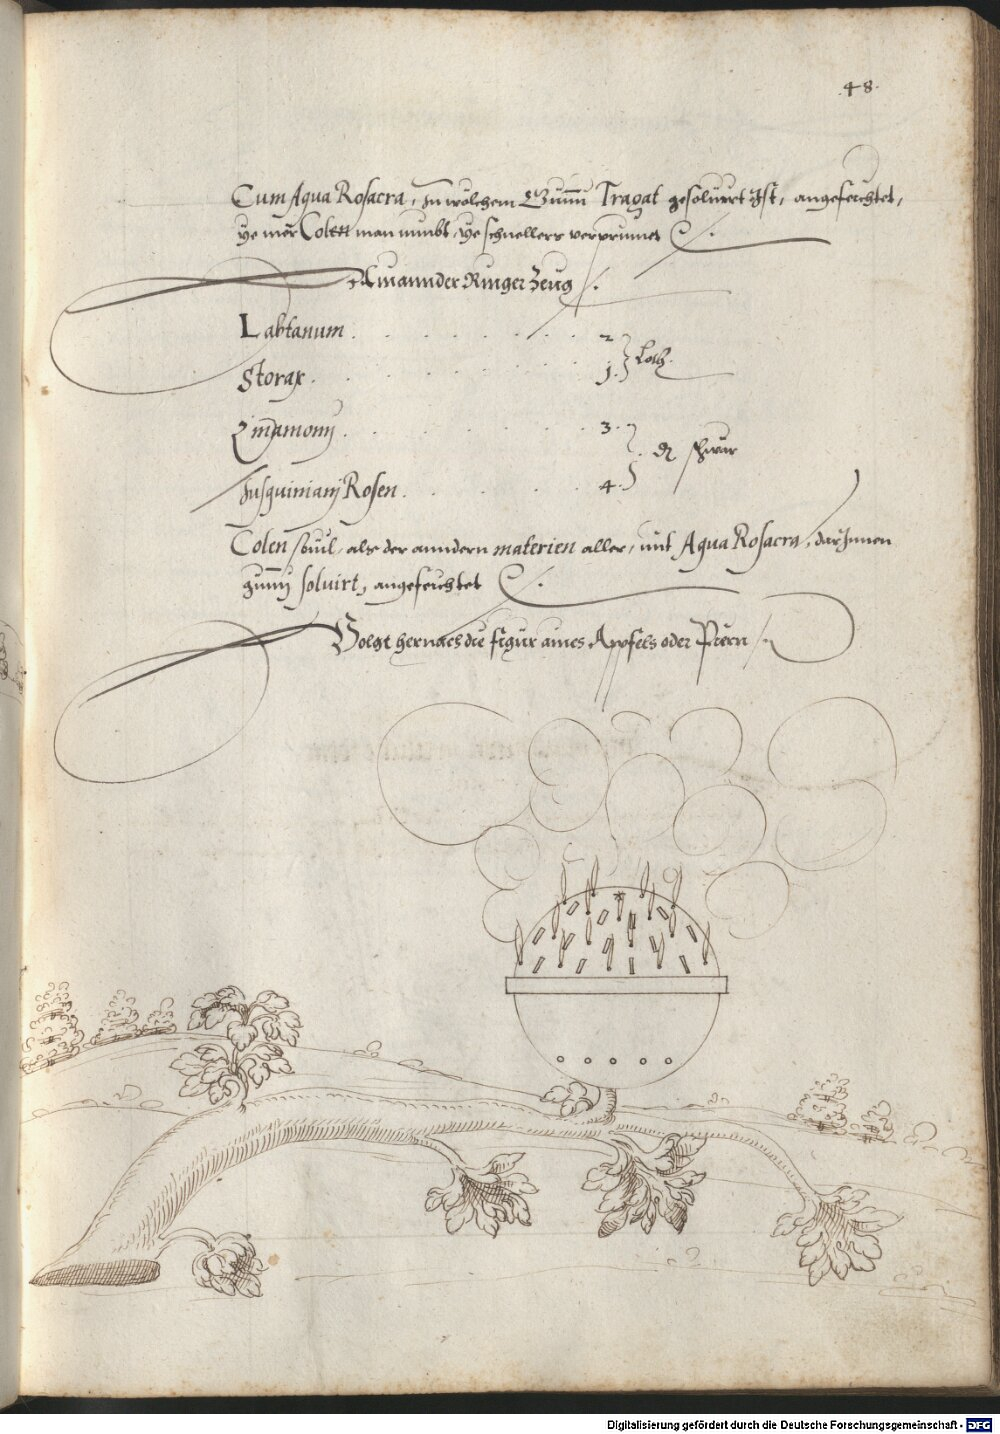 .48.
Cum Aqua Rosacea, In wölchem Gum̄i Tragat gesoluirt Ist, angefeichtet,
ye mer Colen man nimbt, ye schnellers verprinnet
Ain annder Ringer Zeug
Labtanum . . . . . . 2
Storax . . . . . . 1 Loth.
Zinamomj . . . . . . 3.
Jusquiniamj Rosen . . . . . 4.
Colen souil, als der anndern materien aller, mit Aqua Rosacea, dar Innen
gum̄j soluirt, angefeichtet
Volgt hernach die figur aines Apfels oder Piern
Digitalisierung gefördert durch die Deutsche Forschungsgemeinschaft - DFG